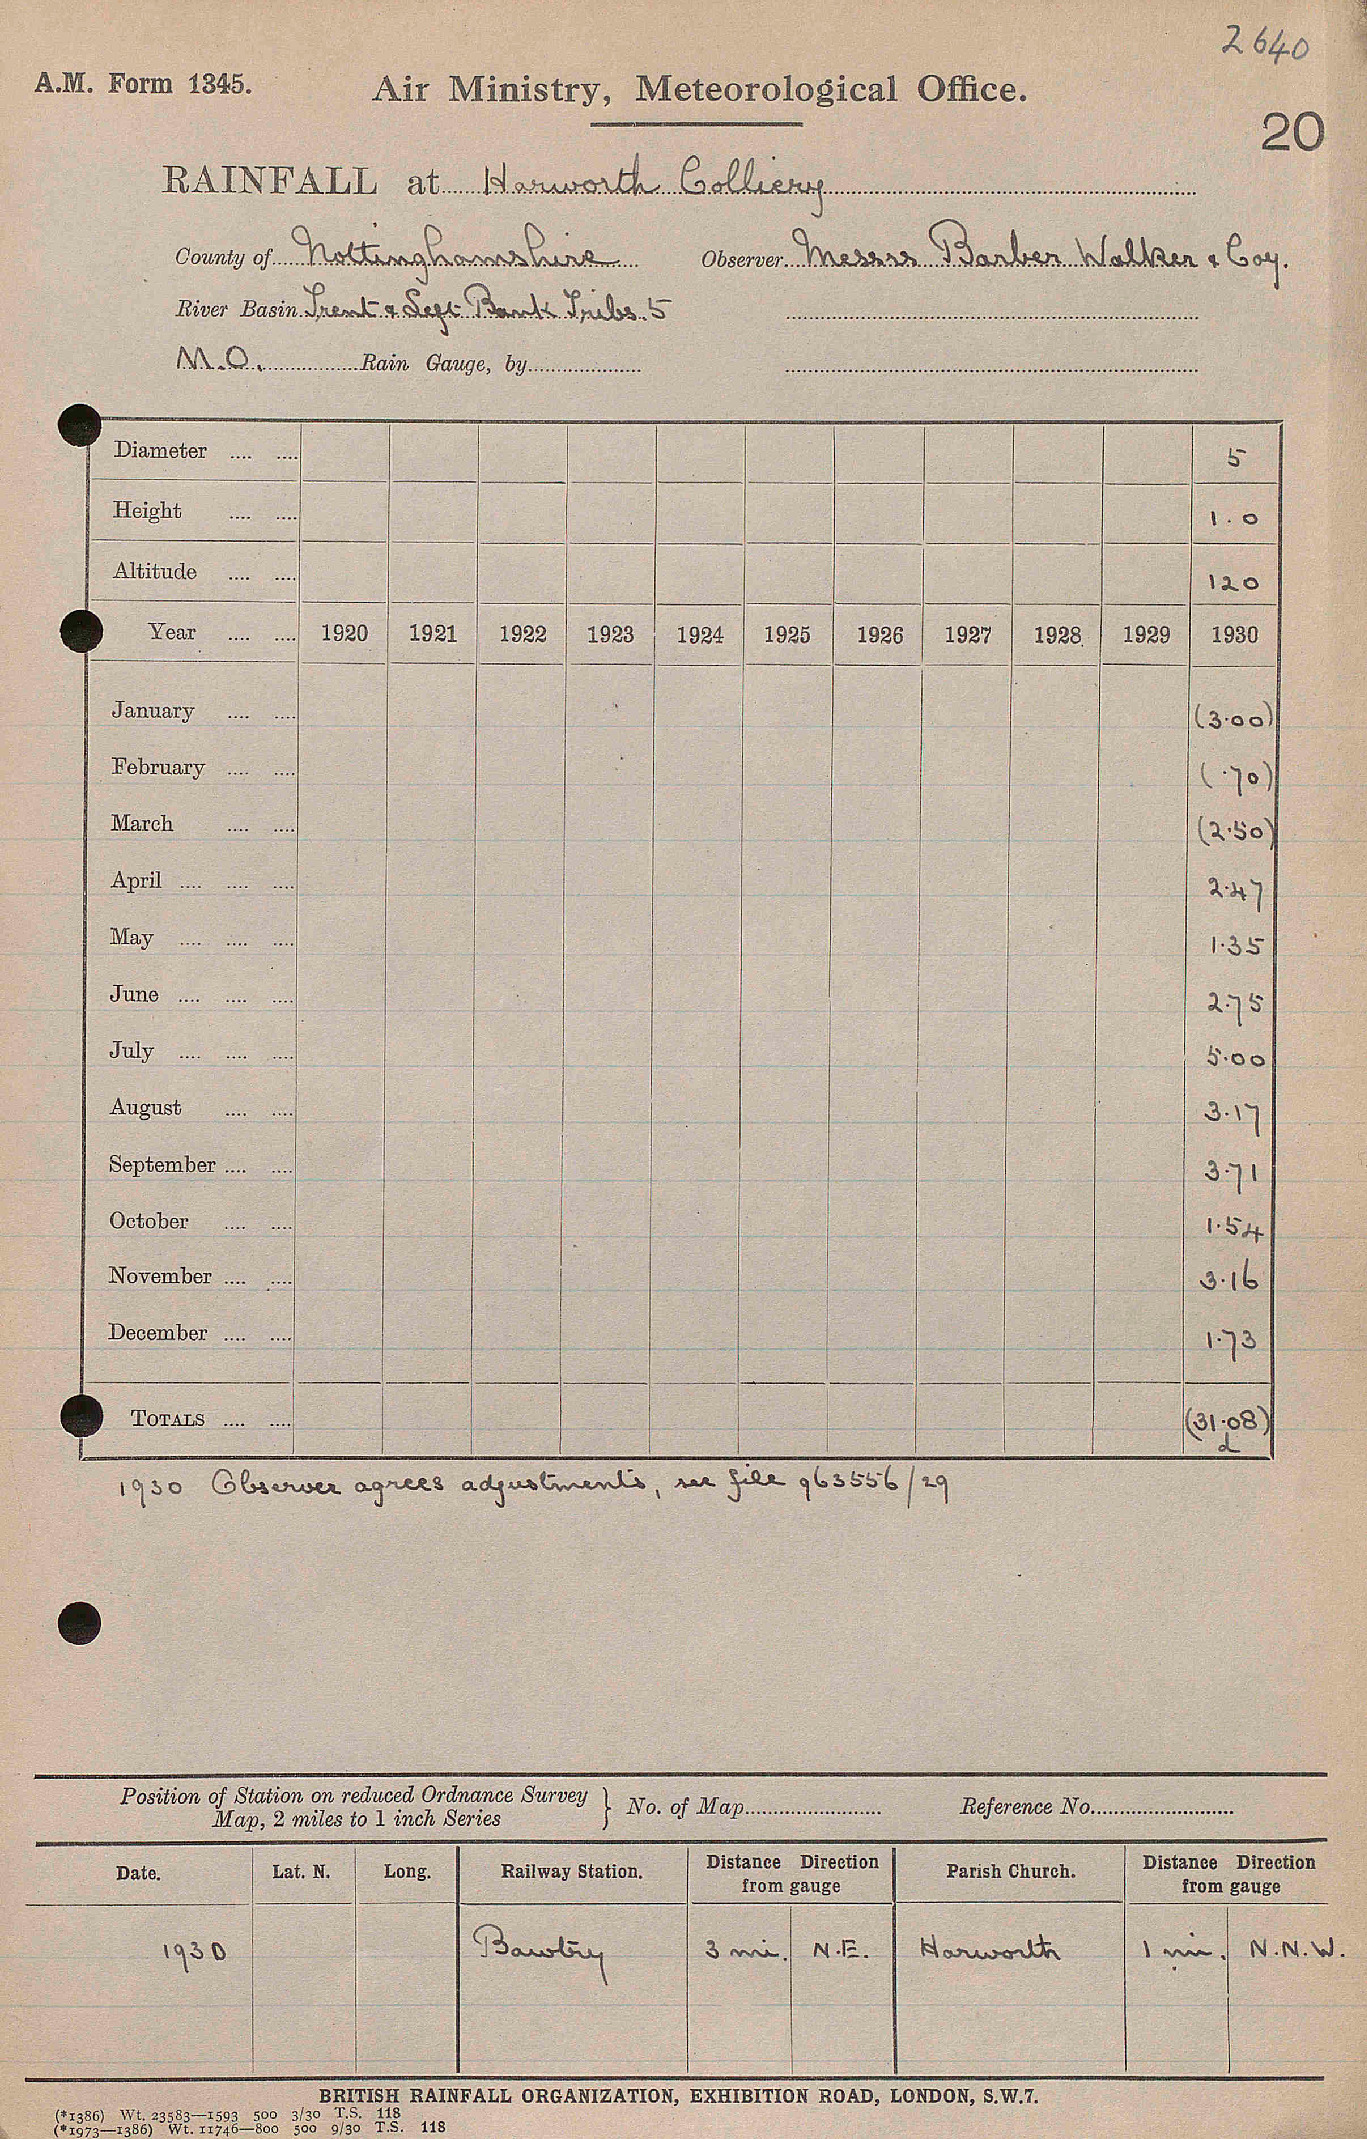 2640
A.M. Form 1345. Air Ministry, Meteorological Office.
20
RAINFALL at Harworth Colliery
County of Nottinghamshire Observer Messrs Barber Walker & Coy.
River Basin Trent & Left Bank Tribs. 5
M.O. Rain Gauge, by
Diameter .... .... 5
Height .... .... 1.0
Altitude .... .... 120
Year .... .... 1920 1921 1922 1923 1924 1925 1926 1927 1928 1929 1930
January .... .... (3.00)
February .... .... (.70)
March .... .... (2.50)
April .... .... .... 2.47
May .... .... .... 1.35
June .... .... .... 2.75
July .... .... .... 5.00
August .... .... 3.17
September .... .... 3.71
October .... .... 1.54
November .... .... 3.16
December .... .... 1.73
TOTALS .... .... (31.08)
d
1930 Observer agrees adjustments, see file 963556/29
Position of Station on reduced Ordnance Survey
Map, 2 miles to 1 inch Series } No. of Map Reference No.
Date. Lat. N. Long. Railway Station. Distance Direction from gauge Parish Church. Distance Direction from gauge
1930 Bawtry 3 mi. N.E. Harworth 1 mi. N.N.W.
BRITISH RAINFALL ORGANIZATION, EXHIBITION ROAD, LONDON, S.W.7.
(*1386) Wt. 23583—1593 500 3/30 T.S. 118
(*1973—1386) Wt. 11746—800 500 9/30 T.S. 118